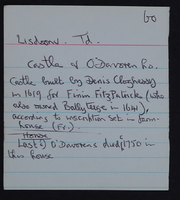 60
Lisdoonv. Td.
Castle & O'Davoren ho.
Castle built by Denis Cloghessy
in 1619 for Finin FitzPatrick (who
also owned Ballyteige in 1641),
according to inscription set in farm-
house (Fr.)
House
Last of O'Davorens died 1750 in
this house